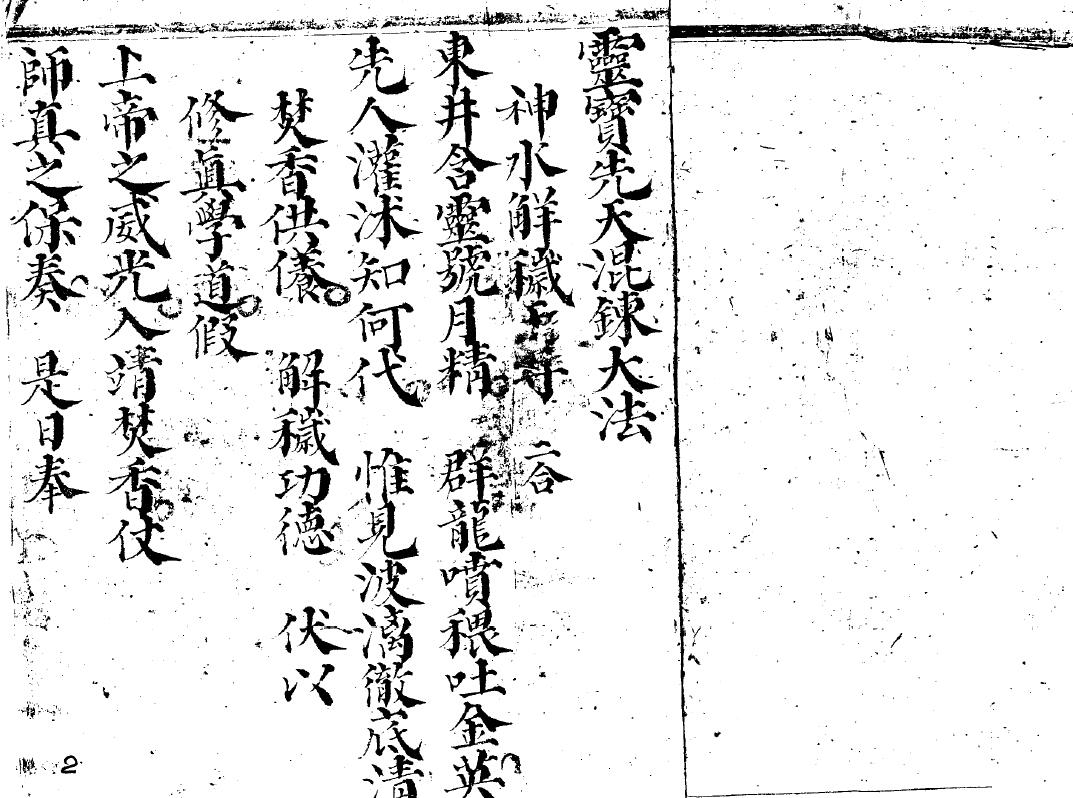 靈寶先天混鍊大法
神水解穢 二合
東井含靈號月精 群龍噴穢吐金英
先人灌沭知何代 惟見波漓徹底清
焚香供養 解穢功德 伏以
修真學道假
上帝之威光入靖焚香仗
師真之保奏 是日奉
2